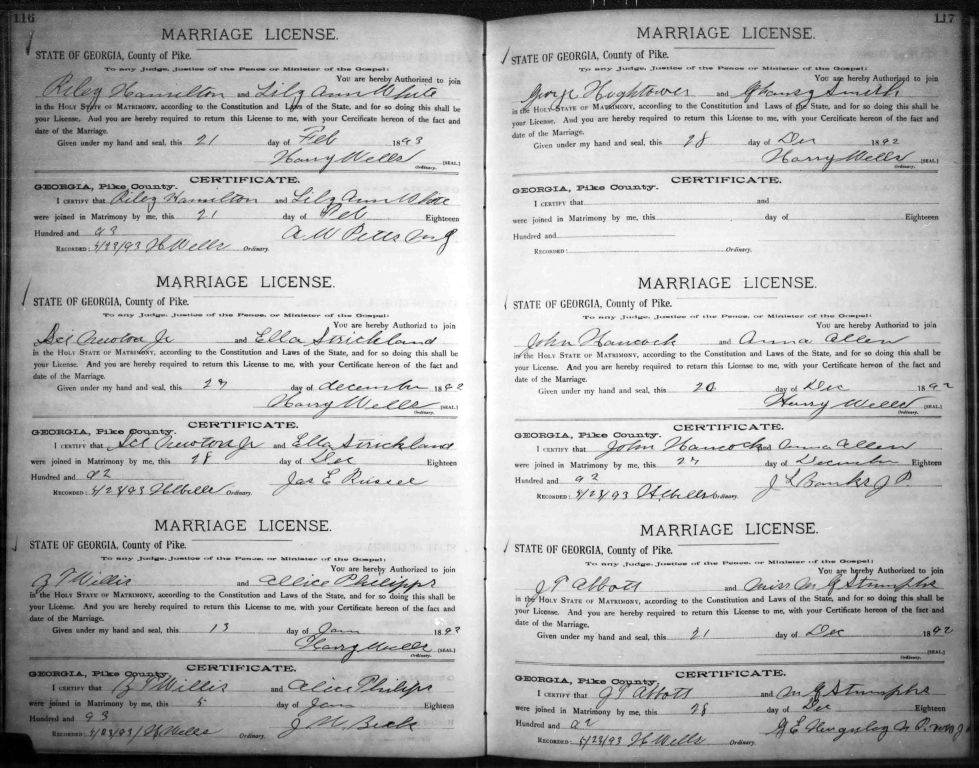 116
MARRIAGE LICENSE.
STATE OF GEORGIA, County of Pike.
To any Judge, Justice of the Peace or Minister of the Gospel:
You are hereby Authorized to join
Riley Hamilton and Lily Ann White
in the HOLY STATE OF MATRIMONY, according to the Constitution and Laws of the State, and for so doing this shall be
your License. And you are hereby required to return this License to me, with your Certificate hereon of the fact and
date of the Marriage.
Given under my hand and seal, this 21 day of Feb 1893
Harry Wells [SEAL.]
Ordinary.
CERTIFICATE.
GEORGIA, Pike County.
I CERTIFY that Riley Hamilton and Lily Ann White
were joined in Matrimony by me, this 21 day of Feb Eighteen
Hundred and 93 A W Petts M G
RECORDED: 4/23/93 H Wells Ordinary.
MARRIAGE LICENSE.
STATE OF GEORGIA, County of Pike.
To any Judge, Justice of the Peace, or Minister of the Gospel:
You are hereby Authorized to join
Newton Jr and Ella Strickland
in the HOLY STATE OF MATRIMONY, according to the Constitution and Laws of the State, and for so doing this shall be
your License. And you are hereby required to return this License to me, with your Certificate hereon of the fact and
date of the Marriage.
Given under my hand and seal, this 27 day of december 1892
Harry Wells [SEAL.]
Ordinary.
CERTIFICATE.
GEORGIA, Pike County.
I CERTIFY that Newton Jr and Ella Strickland
were joined in Matrimony by me, this 28 day of Dec Eighteen
Hundred and 92 Jas E Russel
RECORDED: 4/23/93 H Wells Ordinary.
MARRIAGE LICENSE.
STATE OF GEORGIA, County of Pike.
To any Judge, Justice of the Peace, or Minister of the Gospel:
You are hereby Authorized to join
Willis and Allice Philipps
in the HOLY STATE OF MATRIMONY, according to the Constitution and Laws of the State, and for so doing this shall be
your License. And you are hereby required to return this License to me, with your Certificate hereon of the fact and
date of the Marriage.
Given under my hand and seal, this 13 day of Jan 1892
Harry Wells [SEAL.]
Ordinary.
CERTIFICATE.
GEORGIA, Pike County.
I CERTIFY that Willis and Alice Philips
were joined in Matrimony by me, this 5 day of Jan Eighteen
Hundred and 93 J M
RECORDED: 4/23/93 H Wells Ordinary.
117
MARRIAGE LICENSE.
STATE OF GEORGIA, County of Pike.
To any Judge, Justice of the Peace or Minister of the Gospel:
You are hereby Authorized to join
George Hightower and Smith
in the HOLY STATE OF MATRIMONY, according to the Constitution and Laws of the State, and for so doing this shall be
your License. And you are hereby required to return this License to me, with your Certificate hereon of the fact and
date of the Marriage.
Given under my hand and seal, this 28 day of Dec 1892
Harry Wells [SEAL.]
Ordinary.
CERTIFICATE.
GEORGIA, Pike County.
I CERTIFY that and
were joined in Matrimony by me, this day of Eighteen
Hundred and
RECORDED: Ordinary.
MARRIAGE LICENSE.
STATE OF GEORGIA, County of Pike.
To any Judge, Justice of the Peace, or Minister of the Gospel:
You are hereby Authorized to join
John Hancock and Anna Allen
in the HOLY STATE OF MATRIMONY, according to the Constitution and Laws of the State, and for so doing this shall be
your License. And you are hereby required to return this License to me, with your Certificate hereon of the fact and
date of the Marriage.
Given under my hand and seal, this 20 day of Dec 1892
Harry Wells [SEAL.]
Ordinary.
CERTIFICATE.
GEORGIA, Pike County.
I CERTIFY that John Hancock and Anna Allen
were joined in Matrimony by me, this 27 day of December Eighteen
Hundred and 92 J L Banks J P.
RECORDED: 4/23/93 H. Wells Ordinary.
MARRIAGE LICENSE.
STATE OF GEORGIA, County of Pike.
To any Judge, Justice of the Peace, or Minister of the Gospel:
You are hereby Authorized to join
J T Abbott and Miss M G Stumphs
in the HOLY STATE OF MATRIMONY, according to the Constitution and Laws of the State, and for so doing this shall be
your License. And you are hereby required to return this License to me, with your Certificate hereon of the fact and
date of the Marriage.
Given under my hand and seal, this 21 day of Dec 1892
[SEAL.]
Ordinary.
CERTIFICATE.
GEORGIA, Pike County.
I CERTIFY that J T Abbott and M G Stumphs
were joined in Matrimony by me, this 28 day of Dec Eighteen
Hundred and 92
RECORDED: 4/23/93 H Wells Ordinary.